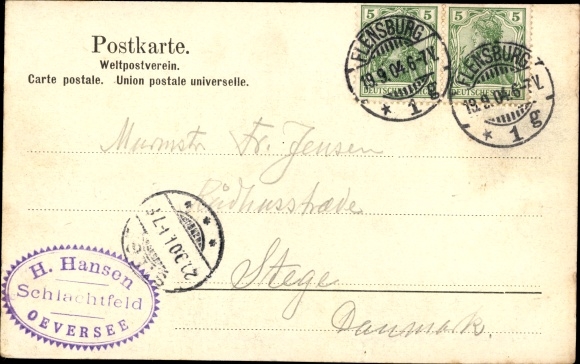 Postkarte.
Weltpostverein.
Carte postale. Union postale universelle.
5 5 5 5
DEUTSCHES
FLENSBURG
19.9.04.6-7V.
* 1g
FLENSBURG
19.9.04.6-7V.
* 1g
Murmstr Fr. Jensen
Rådhusstræde
Stege
Danmark.
H. Hansen
Schlachtfeld
OEVERSEE